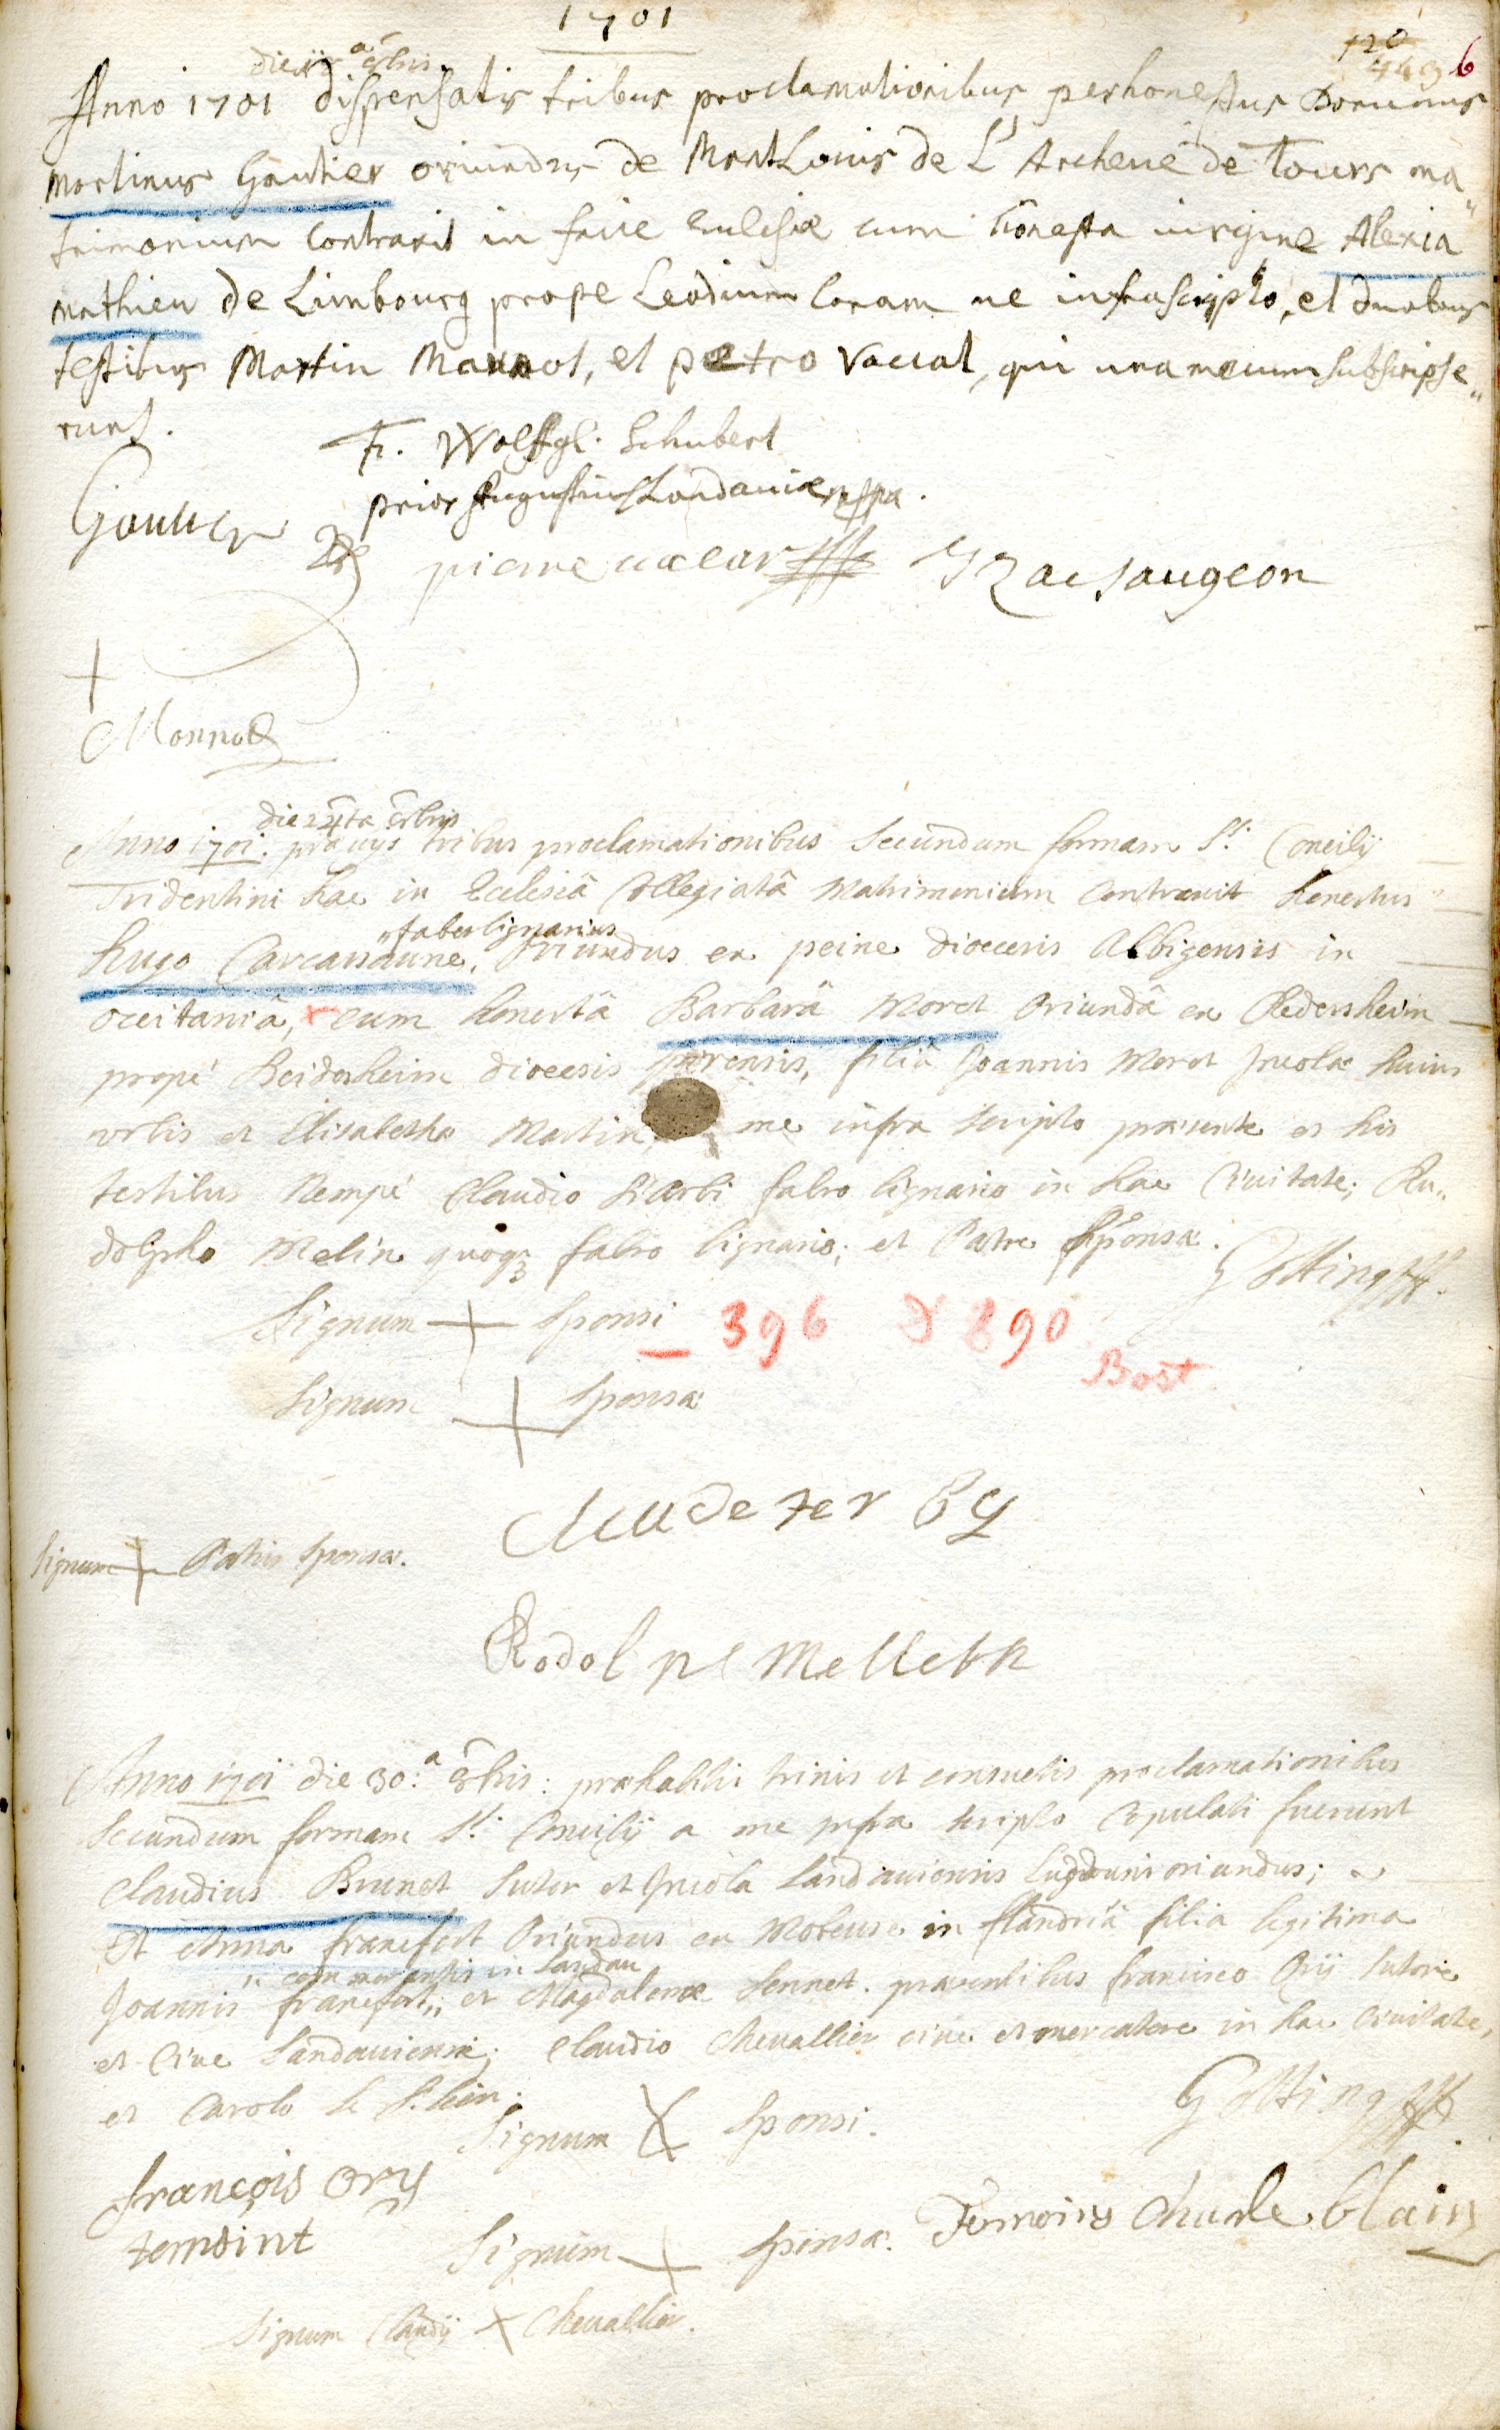 1701
120
443 6
die 8bris
Anno 1701 dispensatis tribus proclamationibus perhonestus Dominus
Martinus Gautier oriundus de MontLouis de L'Archeué de Tours ma„
trimonium contraxit in facie Eulesiæ cum honesta uirgine Alexia
Mathieu de Limbourg prope Leodium Coram me infrascripto, et duobus
testibus Martin Mannot, et petro Vaciat, qui una mecum subscripse„
runt.
Fr. Wolffg: Schubert
prior Augustin Landauiæ mppa.
Gautier
pierre uacear Izac saugeon
Monnot
die 24ta 8bris
Anno 1701. præuijs tribus proclamationibus Secundum formam Sti. Concilij
Tridentini hac in Ecclesiâ Collegiatâ Matrimonium Contraxit honestus
„faber lignarius
Hugo Carcassaune„ Oriundus ex peine dioecesis Albigensis in
occitaniâ, cum honestâ Barbarâ Moret Oriundâ ex Redersheim
propé Beidersheim dioecesis Spirensis, filiâ Joannis Moret Incolæ huius
urbis et Elisabetha Martin, me infra scripto præsente et his
testibus Nempé Claudio fabro lignario in hac Ciuitate; Ru„
dolpho Melin quoq3 fabro lignario; et Patre Sponsæ.
Götting
Signum + Sponsi 396 890
Bost
Signum + Sponsæ
Claude ter by
Signum + Patris Sponsæ.
Rodolph Melleth
Anno 1701 die 30.a 8bris: præhabitis trinis et consuetis proclamationibus
Secundum formam Sti. Concilij a me infra scripto Copulati fuerunt
Claudius Brunet Sutor et Incola Landauiensis Lugduni oriundus;
Et Anna francfort Oriundus ex Mobeuse in flandriâ filia legitima
„commorantis in Landau
Joannis francfort„ et Magdalenæ Sennet. præsentibus francisco Orij Sutore
et Ciue Landauiensi; Claudio Cheuallier ciue et mercatore in hac Ciuitate,
et Carolo le
Götting
Signum X Sponsi.
françois Ory
temoint
Temoins Charle blain
Signum + Sponsæ.
Signum Claudij X Cheuallier.